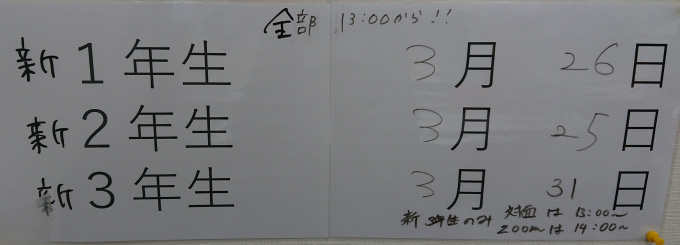 全部 13:00から!!
新1年生 3月 26日
新2年生 3月 25日
新3年生 3月 31日
新3年生のみ 対面は13:00~
zoomは14:00~